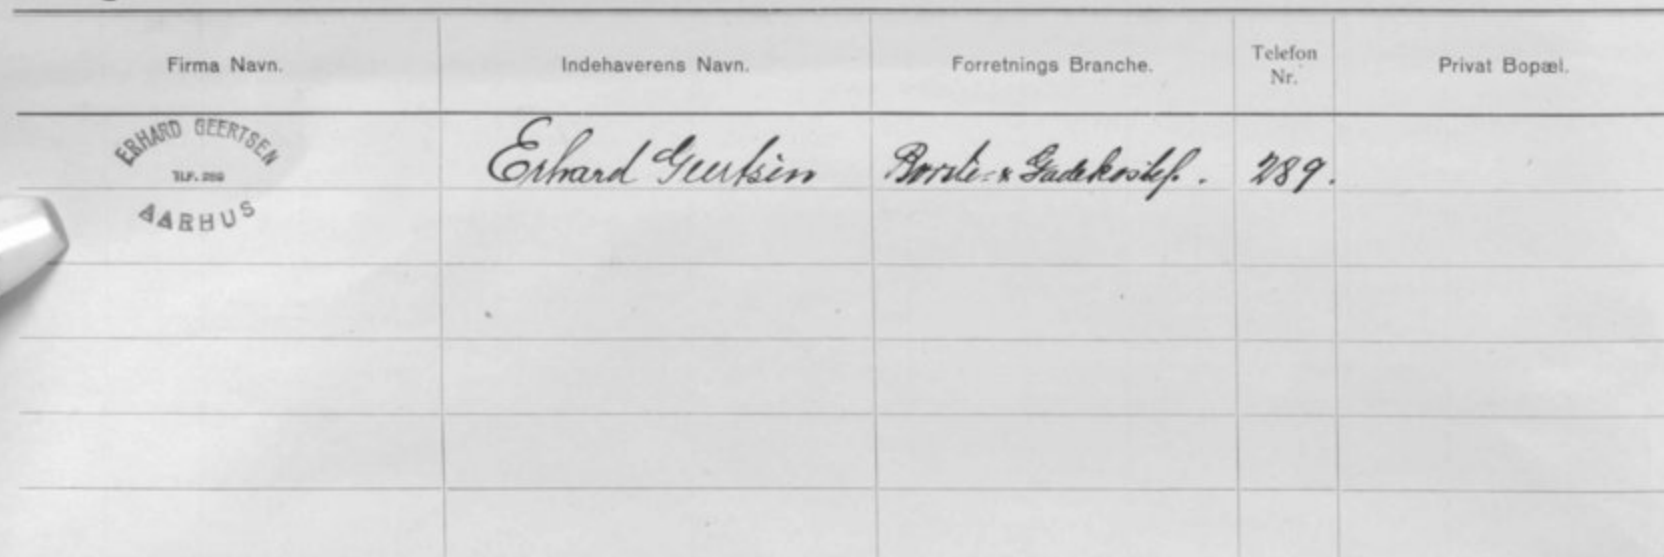 Firma Navn.
Indehaverens Navn.
Forretnings Branche.
Telefon
Nr.
Privat Bopæl.
ERHARD GEERTSEN
TLF. 289
AARHUS
Erhard Geertsen
Børste- & Gadekostef.
289.